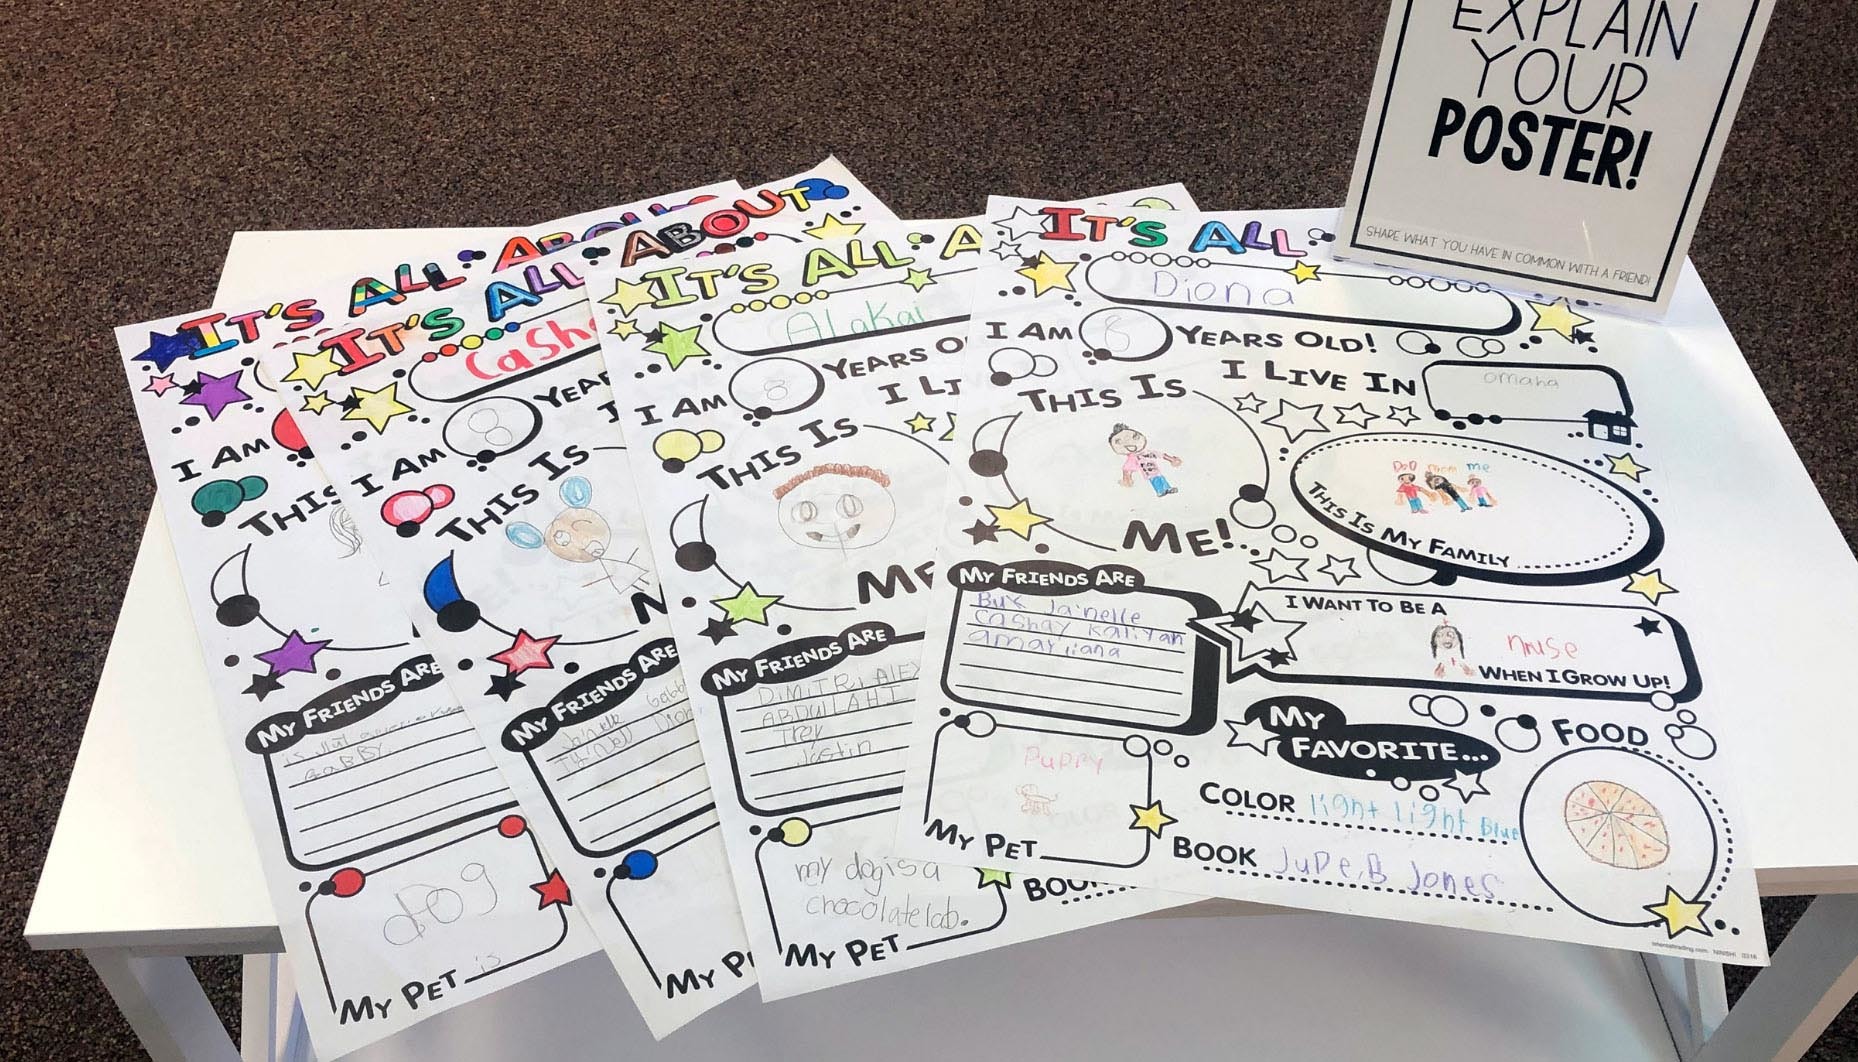 EXPLAIN
YOUR
POSTER!
SHARE WHAT YOU HAVE IN COMMON WITH A FRIEND!
IT'S ALL ABOUT
I AM
THIS
MY FRIENDS ARE
GABBY
dog
MY PET is
IT'S ALL ABOUT
Cash
I AM 8 YEAR
THIS IS
MY FRIENDS ARE
Jainelle Gabb
Dion
MY P
IT'S ALL A
Alakai
I AM 8 YEARS O
I LI
THIS IS
ME
MY FRIENDS ARE
DiMiTRi ALEX
ABDULLAHI
Trev
Justin
my dog is a
chocolate lab.
MY PET
BOO
IT'S ALL
Diona
I AM 8 YEARS OLD!
I LIVE IN omaha
THIS IS
ME!
DaD mom me
THIS IS MY FAMILY
MY FRIENDS ARE
Bux Jainelle
Cashay Kaliyah
amariana
I WANT TO BE A
nruse
WHEN I GROW UP!
Puppy
MY PET
MY
FAVORITE...
FOOD
COLOR light light Blue
BOOK JuDe,B Jones